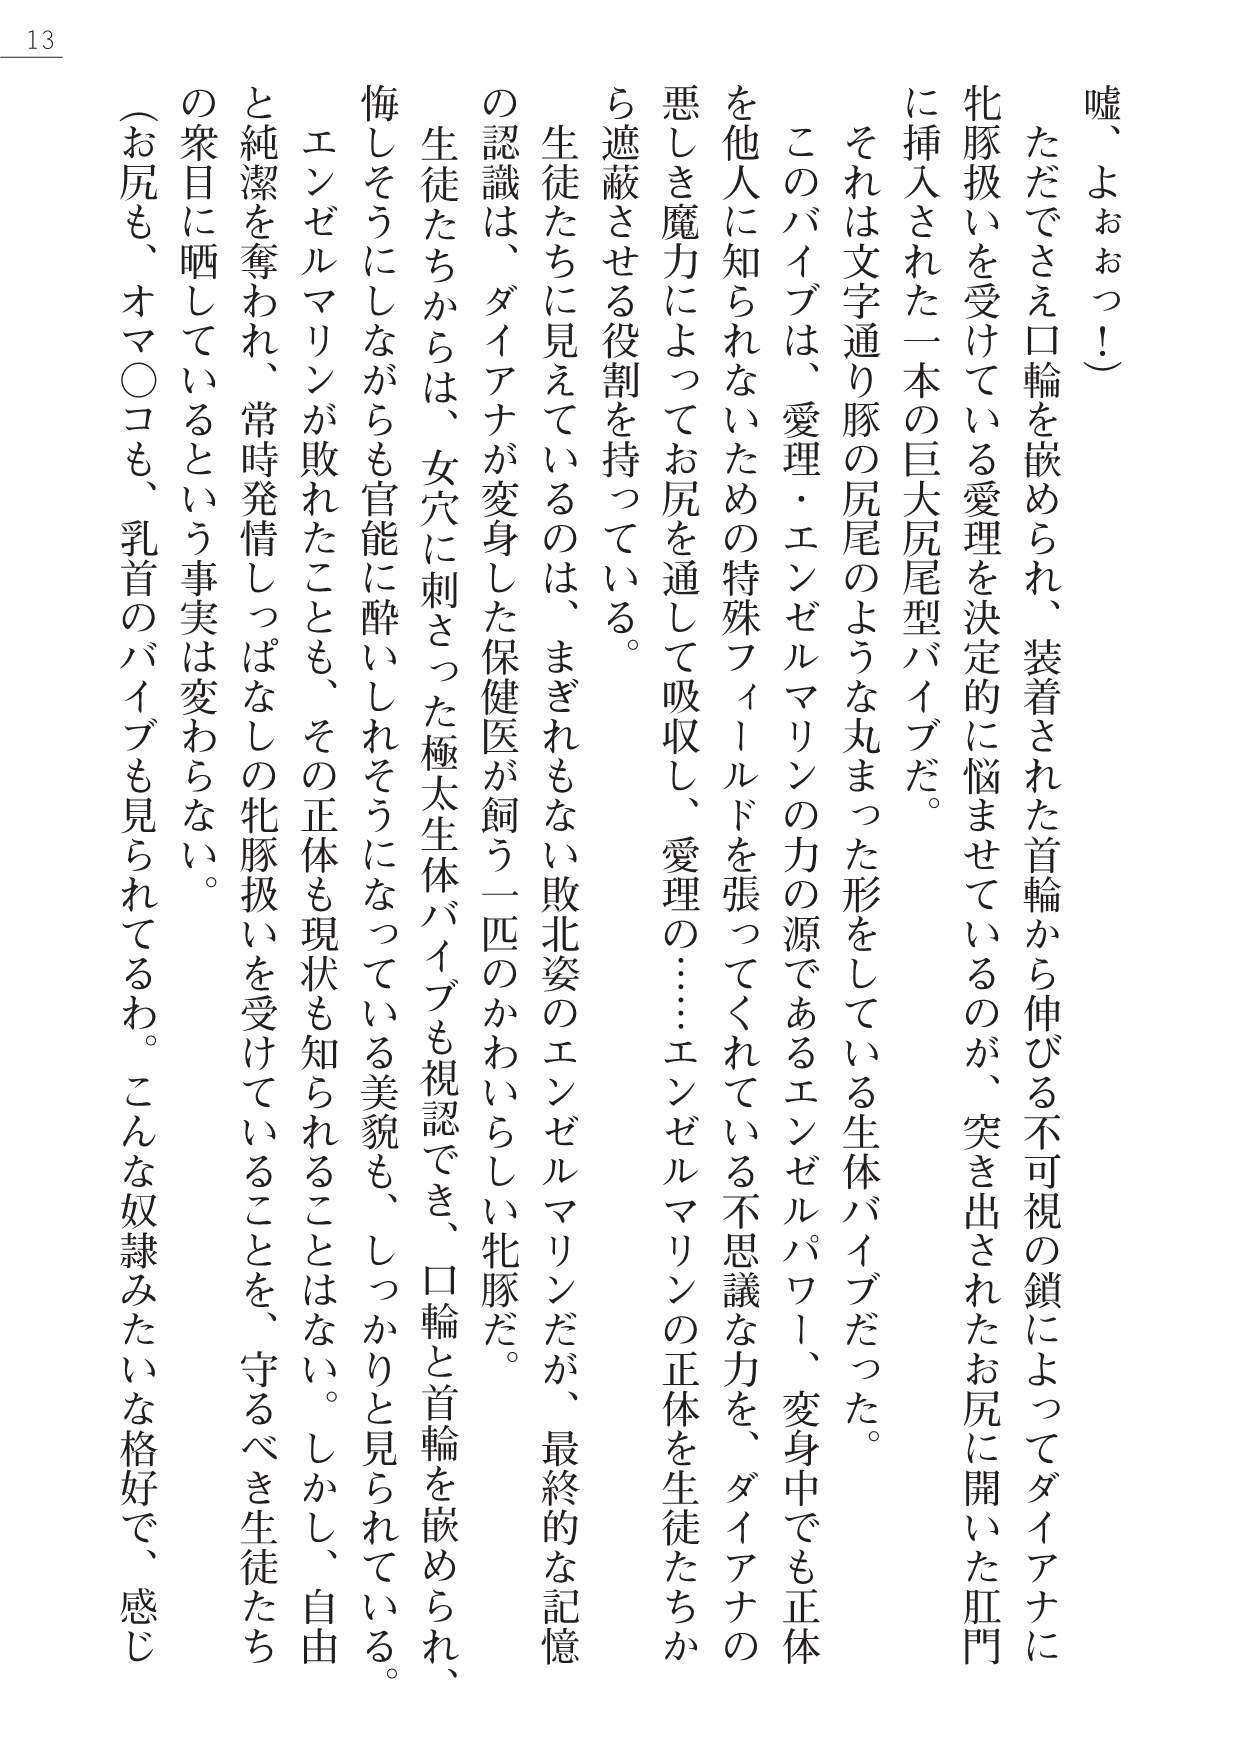 13
嘘、よぉぉっ！）
ただでさえ口輪を嵌められ、装着された首輪から伸びる不可視の鎖によってダイアナに
牝豚扱いを受けている愛理を決定的に悩ませているのが、突き出されたお尻に開いた肛門
に挿入された一本の巨大尻尾型バイブだ。
それは文字通り豚の尻尾のような丸まった形をしている生体バイブだった。
このバイブは、愛理・エンゼルマリンの力の源であるエンゼルパワー、変身中でも正体
を他人に知られないための特殊フィールドを張ってくれている不思議な力を、ダイアナの
悪しき魔力によってお尻を通して吸収し、愛理の……エンゼルマリンの正体を生徒たちか
ら遮蔽させる役割を持っている。
生徒たちに見えているのは、まぎれもない敗北姿のエンゼルマリンだが、最終的な記憶
の認識は、ダイアナが変身した保健医が飼う一匹のかわいらしい牝豚だ。
生徒たちからは、女穴に刺さった極太生体バイブも視認でき、口輪と首輪を嵌められ、
悔しそうにしながらも官能に酔いしれそうになっている美貌も、しっかりと見られている。
エンゼルマリンが敗れたことも、その正体も現状も知られることはない。しかし、自由
と純潔を奪われ、常時発情しっぱなしの牝豚扱いを受けていることを、守るべき生徒たち
の衆目に晒しているという事実は変わらない。
（お尻も、オマ〇コも、乳首のバイブも見られてるわ。こんな奴隷みたいな格好で、感じ